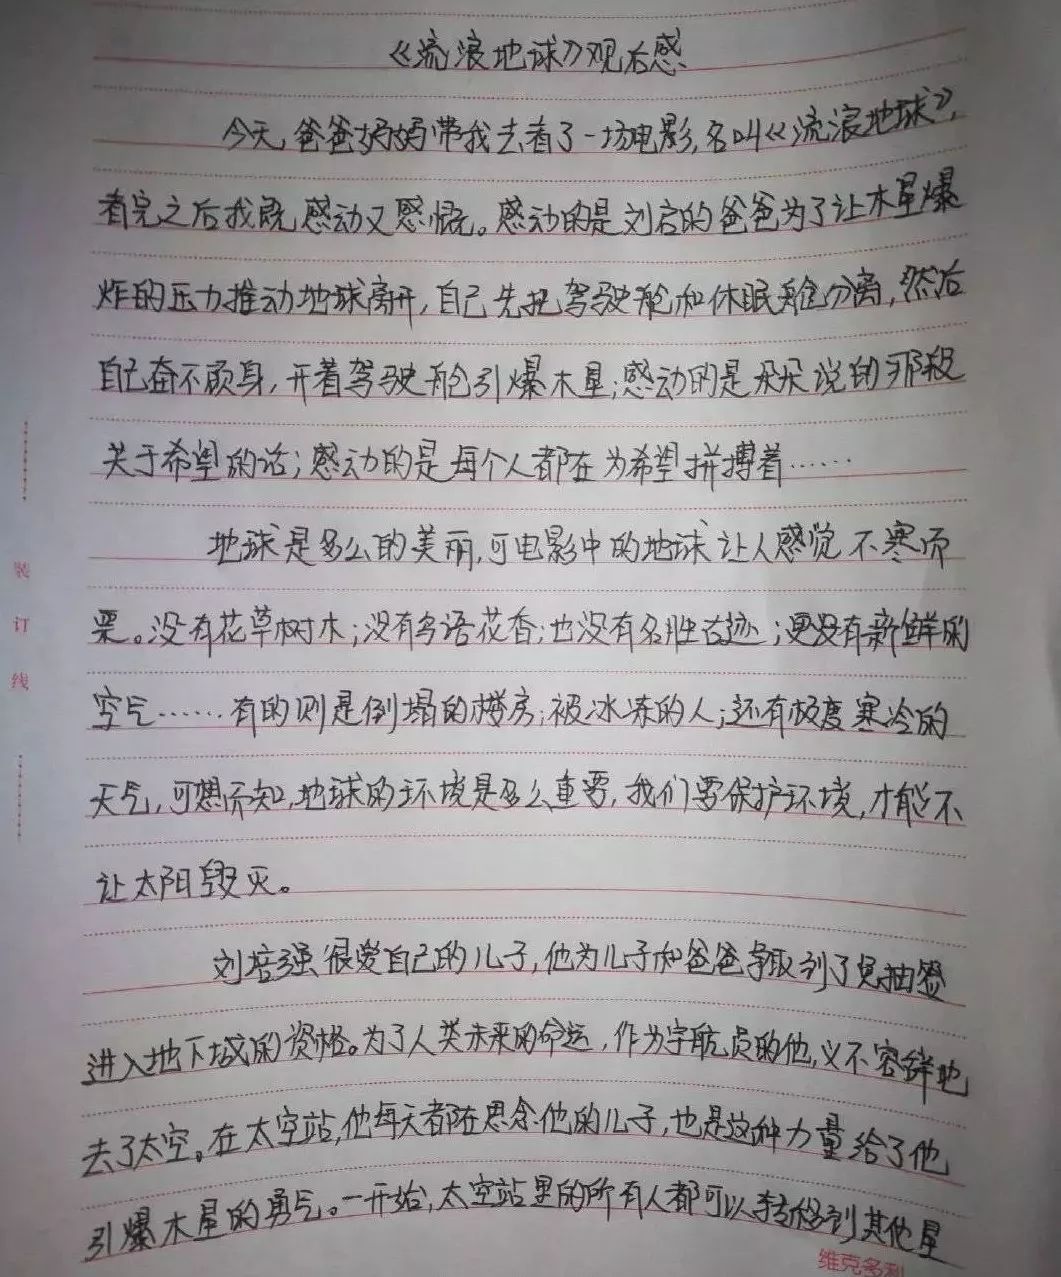 《流浪地球》观后感
今天,爸爸妈妈带我去看了一场电影,名叫《流浪地球》,
看完之后我既感动又感慨。感动的是刘启的爸爸为了让木星爆
炸的压力推动地球离开,自己先把驾驶舱和休眠舱分离,然后
自己奋不顾身,开着驾驶舱引爆木星;感动的是朵朵说的那段
关于希望的话;感动的是每个人都在为希望拼搏着……
地球是多么的美丽,可电影中的地球让人感觉不寒而
栗。没有花草树木;没有鸟语花香;也没有名胜古迹;更没有新鲜的
空气……有的则是倒塌的楼房;被冰冻的人;还有极度寒冷的
天气,可想而知,地球的环境是多么重要,我们要保护环境,才能不
让太阳毁灭。
刘培强很爱自己的儿子,他为儿子和爸爸争取到了免抽签
进入地下城的资格。为了人类未来的命运,作为宇航员的他,义不容辞地
去了太空。在太空站,他每天都在思念他的儿子,也是这种力量给了他
引爆木星的勇气。一开始,太空站里的所有人都可以转移到其他星
装
订
线
维克多利